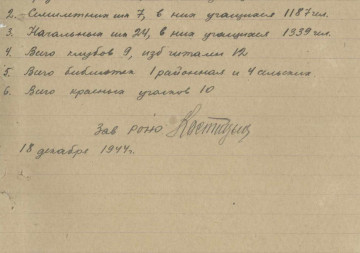 2. Семилетних шк 7, в них учащихся 1187 чел.
3. Начальных шк 24, в них учащихся 1339 чел.
4. Всего клубов 9, изб читален 12
5. Всего библиотек 1 районная и 4 сельских
6. Всего красных уголков 10
Зав роно
18 декабря 1944 г.